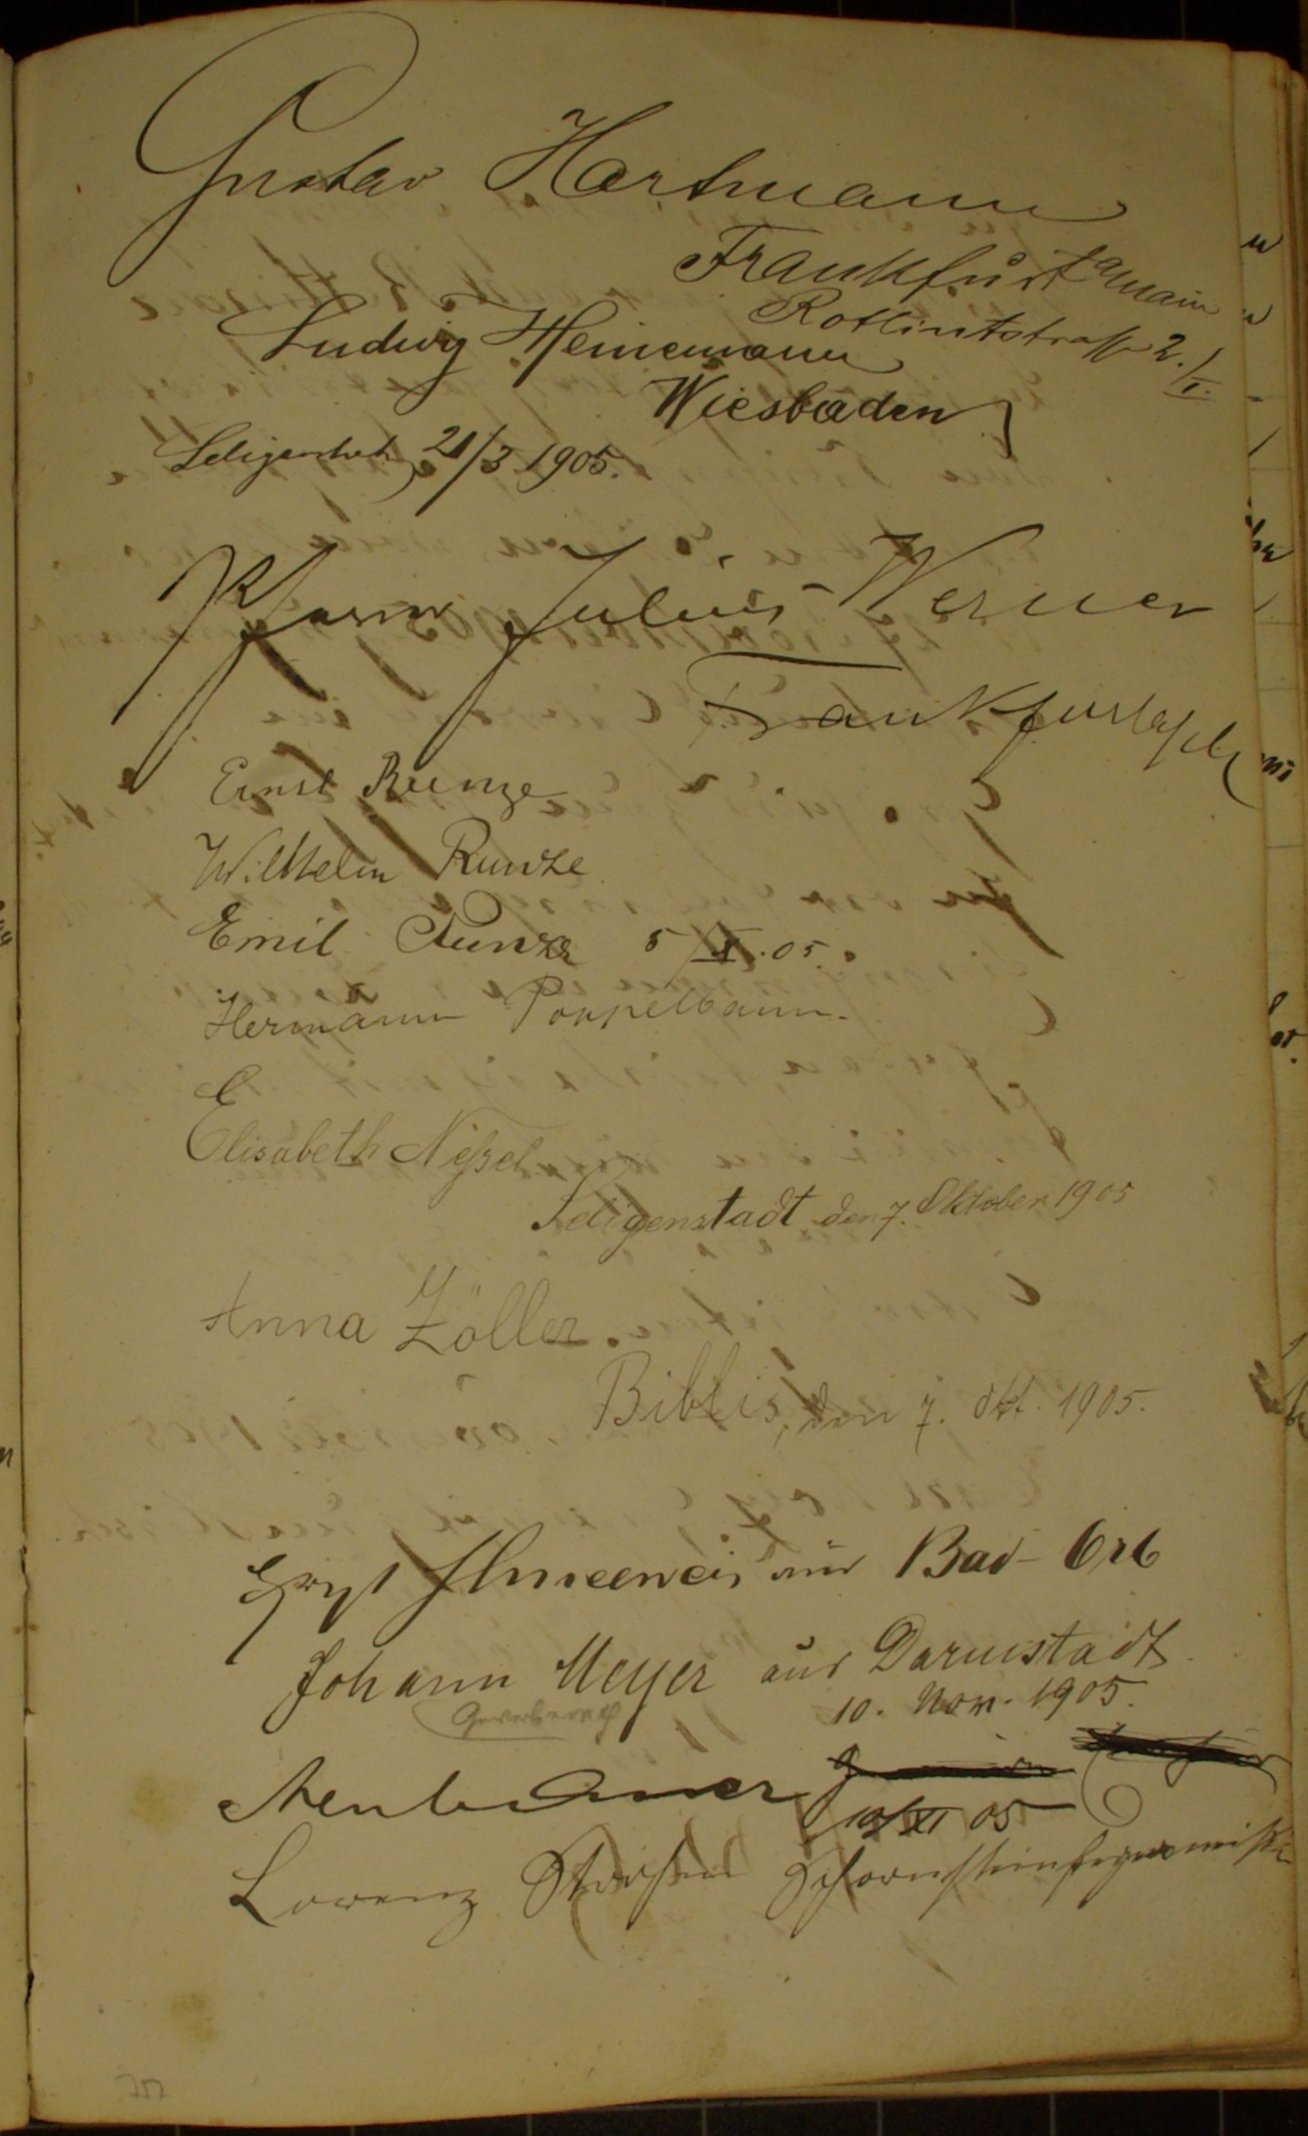 Gustav Hartmann
Frankfurt a Main
Rotlintstraße 2./I.
Ludwig Heinemann
Wiesbaden
Seligenstadt, 21/3 1905.
Pfarrer Julius Werner
Frankfurt
Ernst Runze
Wilhelm Runze
Emil Runze 5/X.05.
Hermann Poppelbaum.
E
Elisabeth Nißel
Seligenstadt den 7. Oktober 1905
Anna Zöller.
Biblis, den 7. Okt. 1905.
aus Bad-Orb
Johann Meyer aus Darmstadt
Gewerberath 10. Nov. 1905.
Neubauer
10/XI 05
Lorenz Schornsteinfegermeister